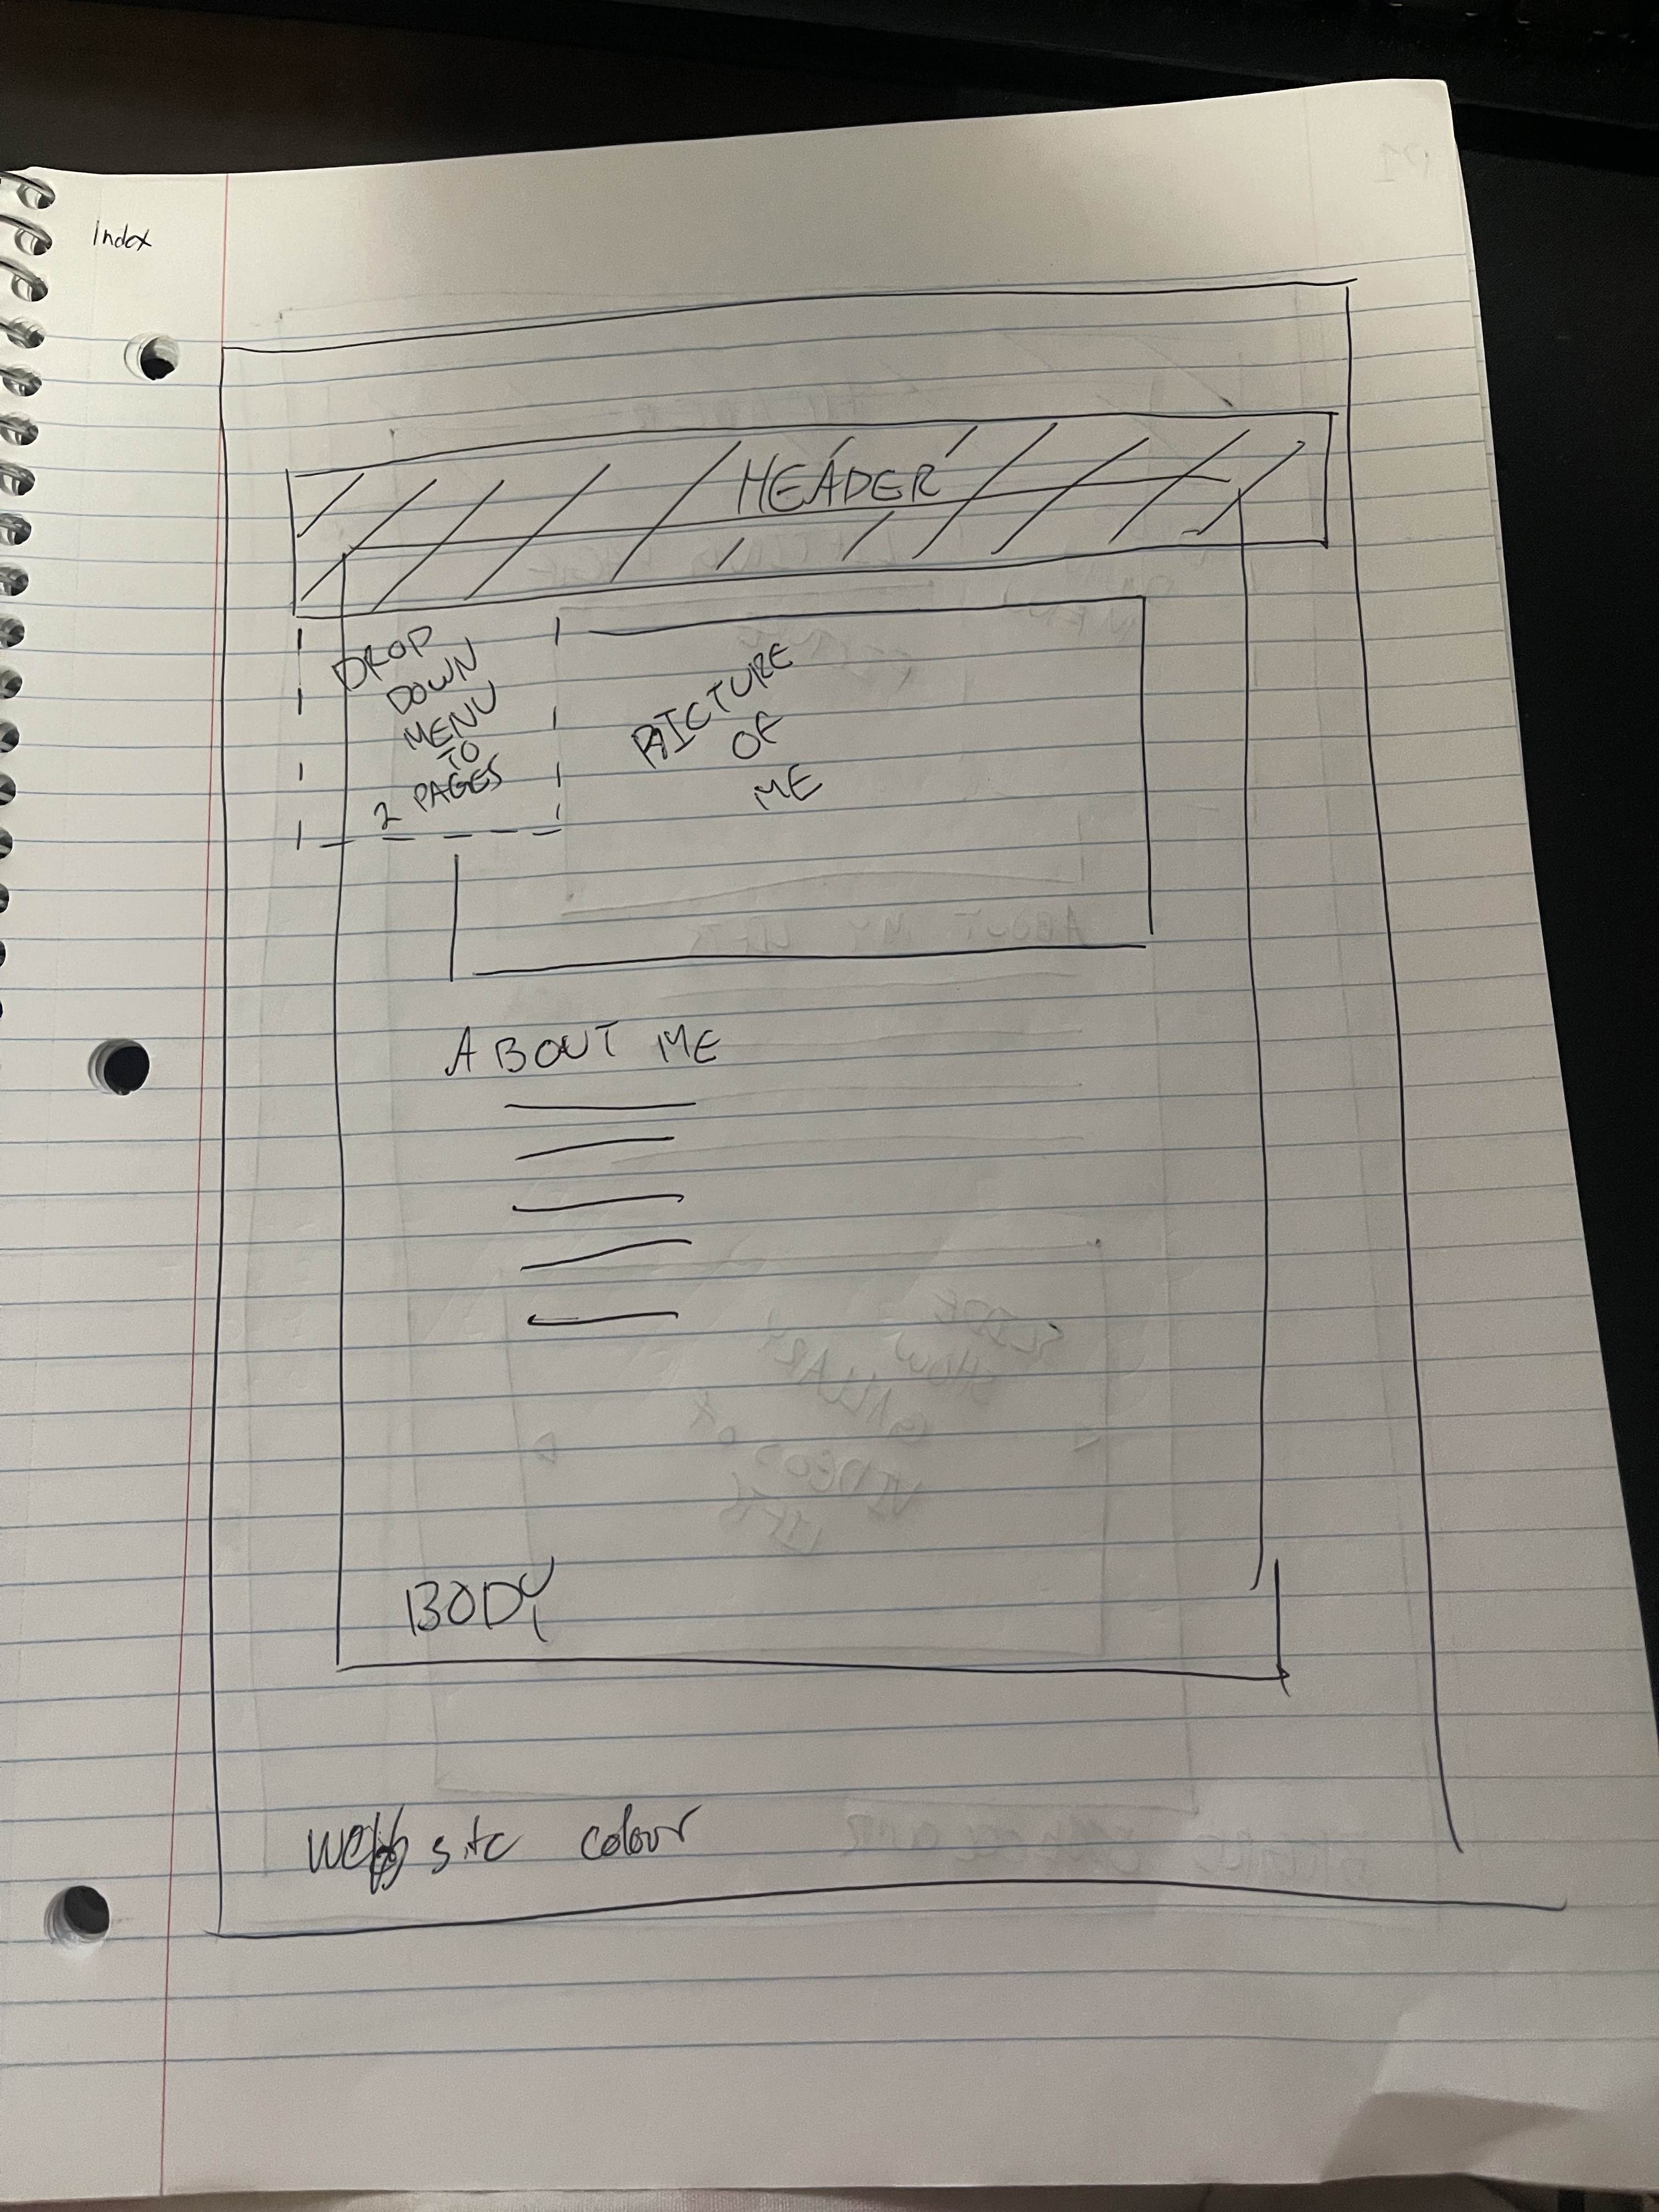 Index
HEADER
DROP
DOWN
MENU
TO
2 PAGES
PICTURE
OF
ME
ABOUT ME
BODY
website colour